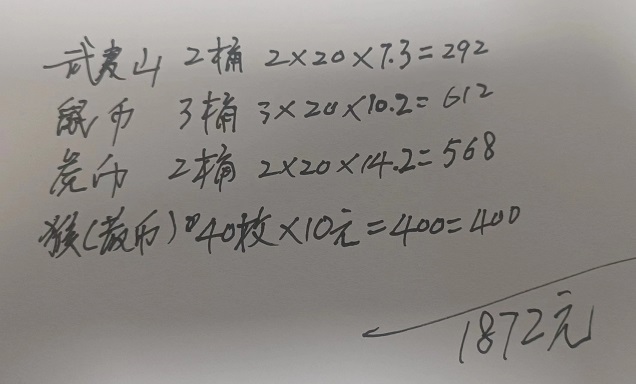 武夷山 2桶 2×20×7.3=292
鼠币 3桶 3×20×10.2=612
虎币 2桶 2×20×14.2=568
猴(散币) 40枚×10元=400=400
1872元